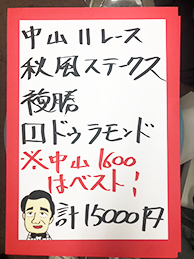 中山11レース
秋風ステークス
複勝
1ドゥラモンド
※中山1600
はベスト！
計15000円